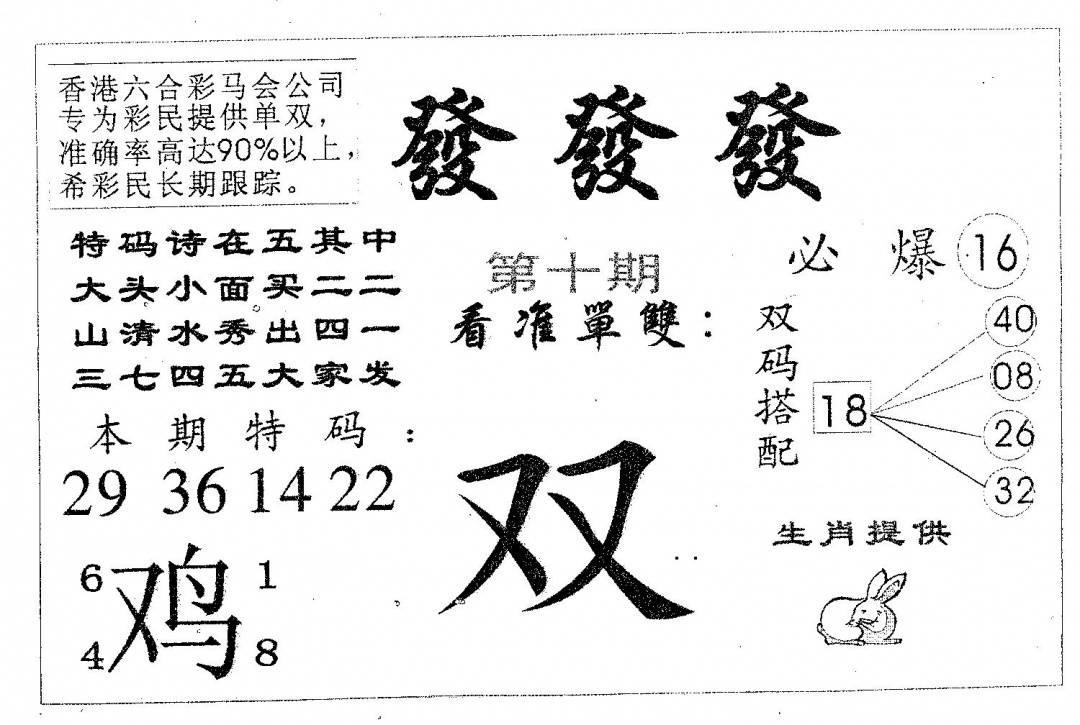 香港六合彩马会公司
专为彩民提供单双，
准确率高达90%以上，
希彩民长期跟踪。
發 發 發
特码诗在五其中
大头小面买二二
山清水秀出四一
三七四五大家发
第十期
看准單雙：
必 爆 16
双码搭配
18
40
08
26
32
本期特码：
29 36 14 22
双
生肖提供
6 鸡 1
4 8